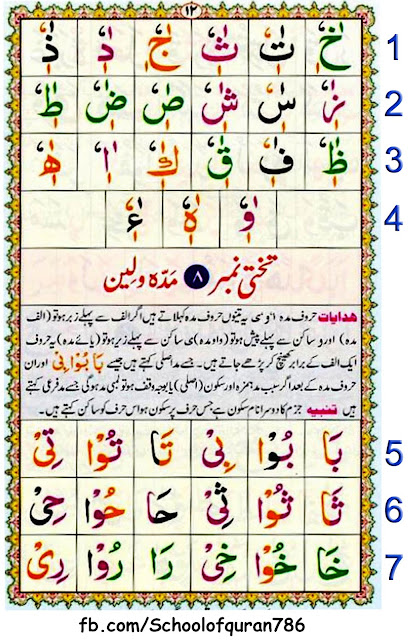 ١٢
خٰٖ تٰٖ ثٰٖ جٰٖ دٰٖ ذٰٖ 1
زٰٖ سٰٖ شٰٖ صٰٖ ضٰٖ طٰٖ 2
ظٰٖ فٰٖ قٰٖ كٰٖ اٰٖ هٰٖ 3
وٰٖ هٰٖ ءٰٖ 4
تختی نمبر ۸ مدّہ و لین
ھدایات حروف مدہ ا و ی یہ تینوں حروف مدہ کہلاتے ہیں اگر الف سے پہلے زبر ہو تو (الف
مدہ) اور و ساکن سے پہلے پیش ہو تو (واو مدہ) ی ساکن سے پہلے زیر ہو تو (یائے مدہ) یہ حروف
ایک الف کے برابر کھینچ کر پڑھے جاتے ہیں۔ جسے مد اصلی کہتے ہیں جیسے بَا بُوْا بِىْ اور ان
حروف مدہ کے بعد اگر سبب مد ہمزہ اور سکون (اصلی) یا بوجہ وقف ہو تو لمبی مد ہوگی جسے مد فرعی کہتے
ہیں تنبیه جزم کا دوسرا نام سکون ہے جس حرف پر سکون ہو اس حرف کو ساکن کہتے ہیں۔
بَا بُوْا بِىْ تَا تُوْا تِىْ 5
ثَا ثُوْا ثِىْ حَا حُوْا حِىْ 6
خَا خُوْا خِىْ رَا رُوْا رِىْ 7
fb.com/Schoolofquran786